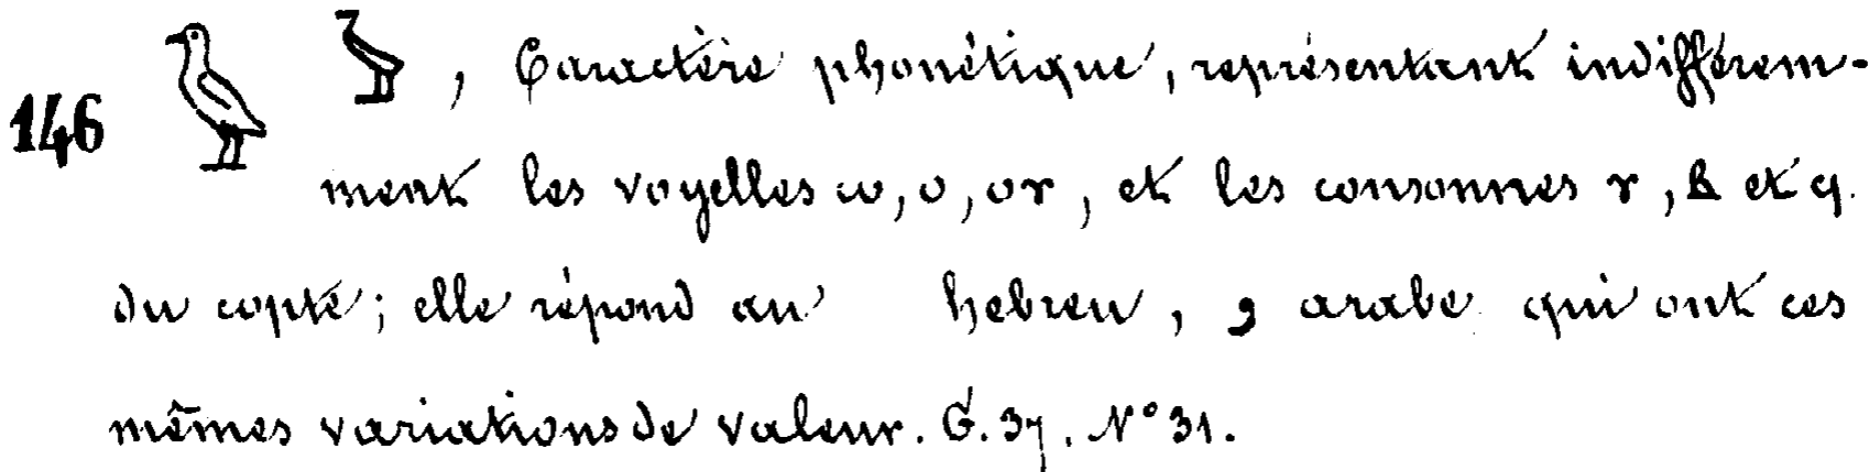 146 𓅱 , Caractère phonétique, représentant indifférem-
ment les voyelles ⲱ, ⲟ, ⲟⲩ, et les consonnes ⲩ, ⲃ et ϥ.
du copte; elle répond au hebreu, و arabe qui ont ces
mêmes variations de valeur. G. 37. N° 31.